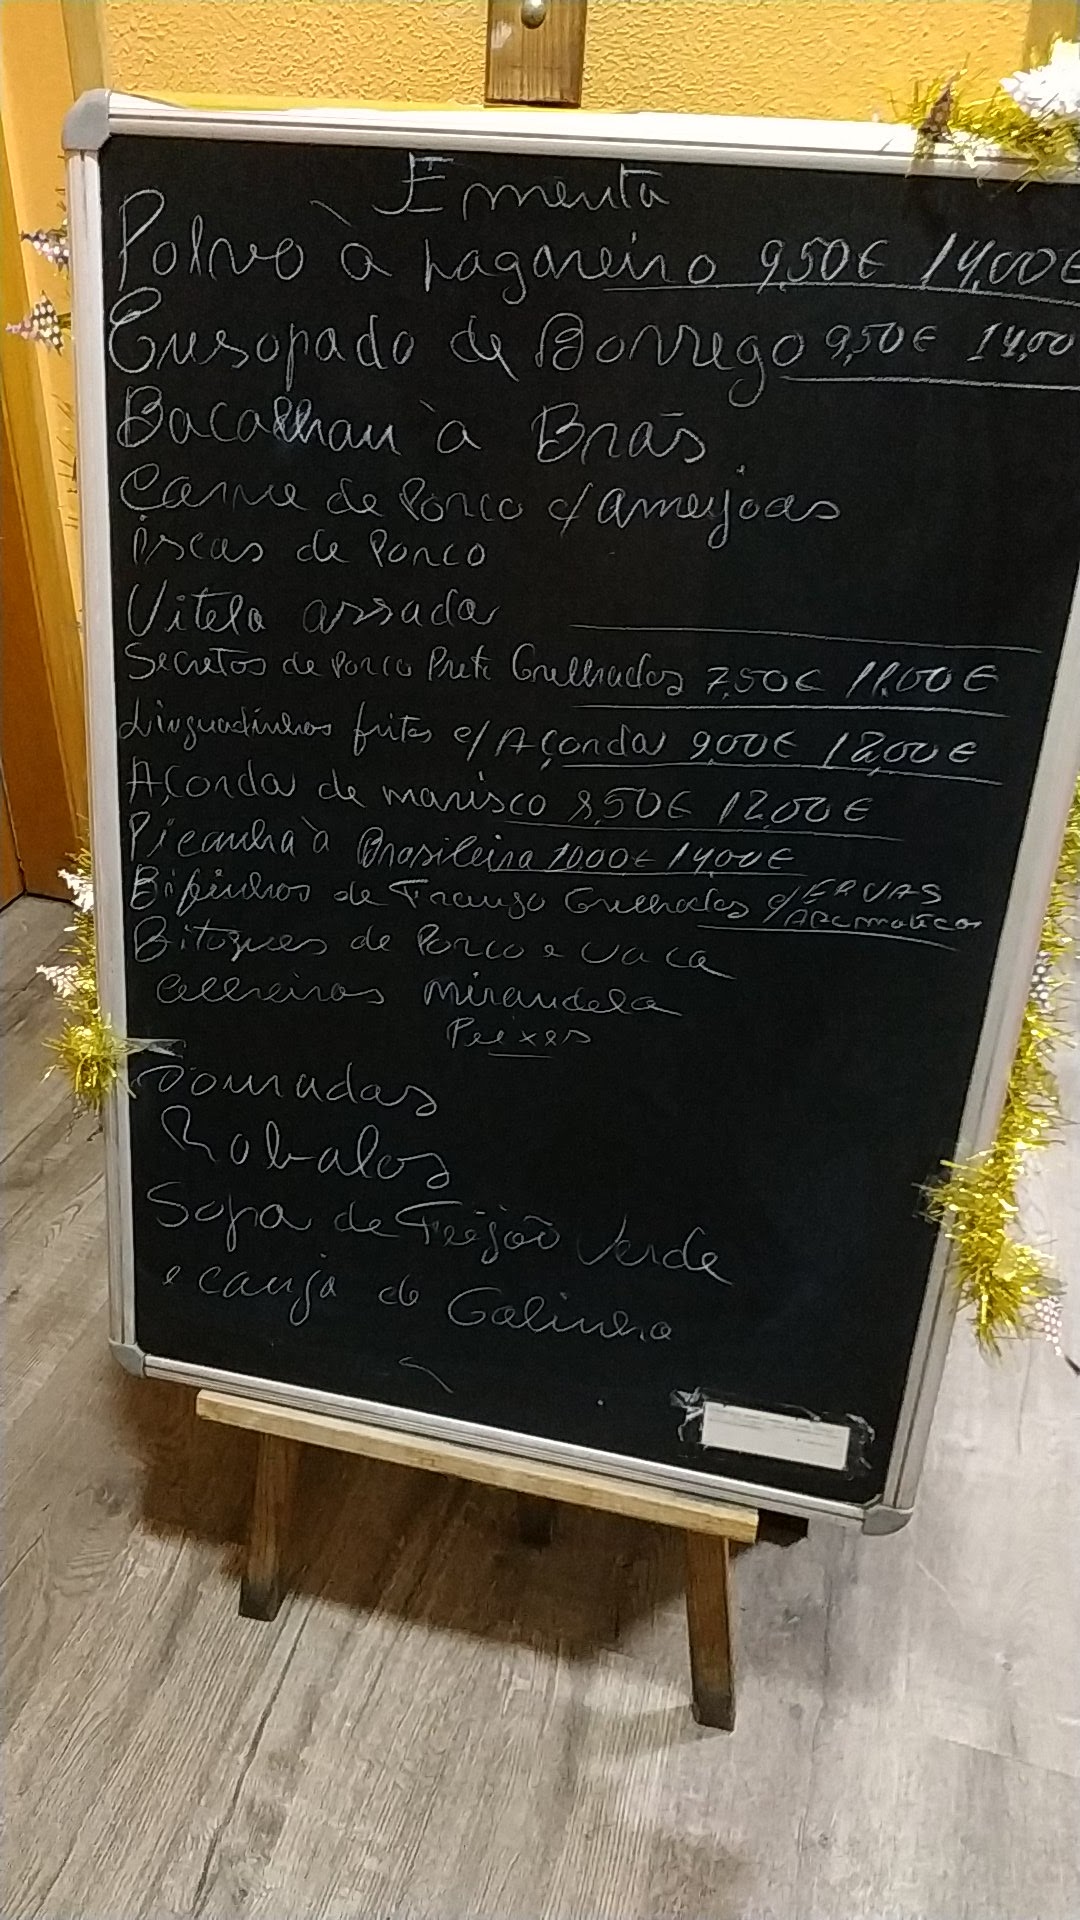 Ementa
Polvo à Lagareiro 9,50€ 14,00€
Ensopado de Borrego 9,50€ 14,00
Bacalhau à Brás
Carne de Porco c/ ameijoas
iscas de Porco
Vitela assada
Secretos de Porco Preto Grelhados 7,50€ 11,00€
Linguadinhos fritos c/ Açorda 9,00€ 12,00€
Açorda de marisco 8,50€ 12,00€
Picanha à Brasileira 10,00€ 14,00€
Bifinhos de Frango Grelhados c/ ERVAS
AROmaticas
Bitoques de Porco e vaca
alheiras mirandela
Peixes
Douradas
Robalos
Sopa de Feijão Verde
e canja de Galinha